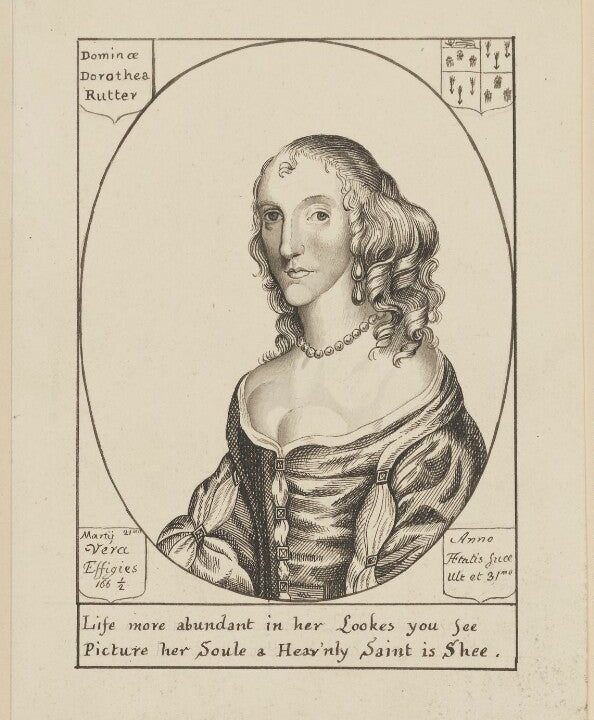 Dominæ
Dorothea
Rutter
Martij 21mo
Vera
Effigies
166 ½
Anno
Ætatis suæ
Ult et 31mo
Life more abundant in her Lookes you see
Picture her Soule a Heav'nly Saint is Shee.